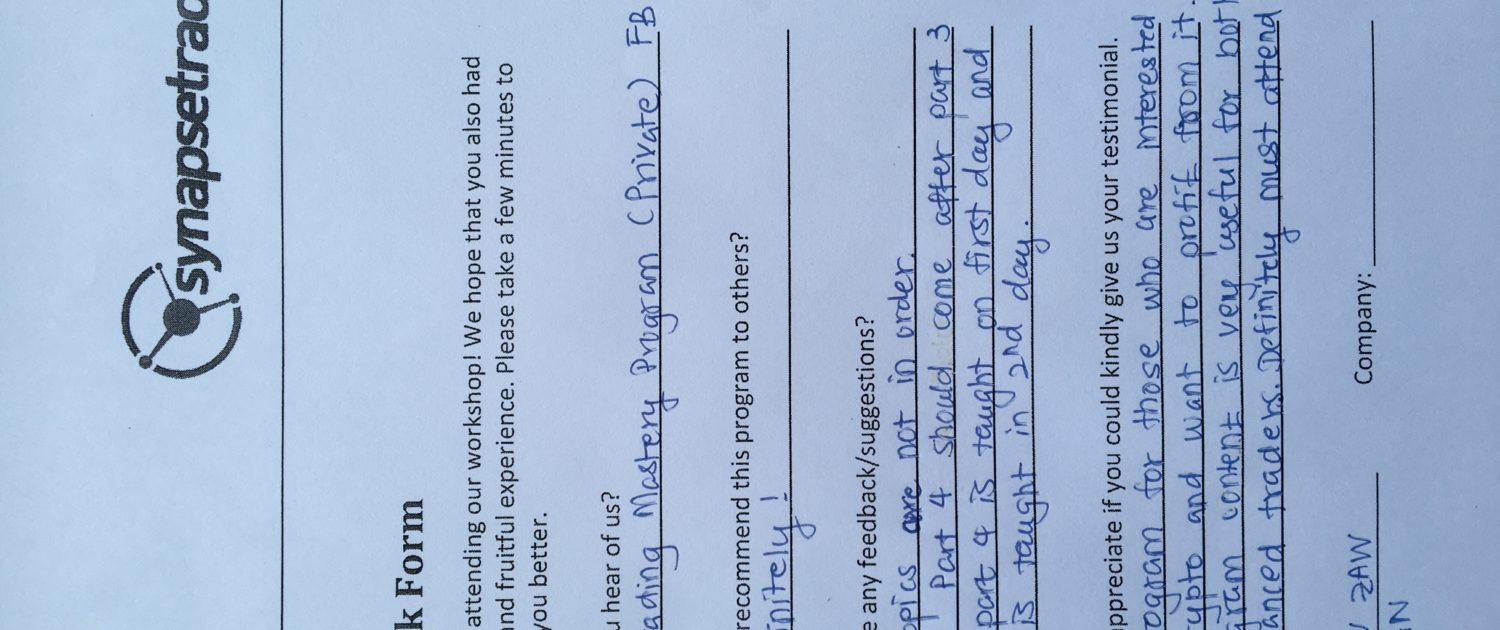 synapsetrad
k Form
attending our workshop! We hope that you also had
nd fruitful experience. Please take a few minutes to
you better.
u hear of us?
ading Mastery Program (Private) FB
recommend this program to others?
initely!
e any feedback/suggestions?
opics are not in order.
Part 4 should come after part 3
part 4 is taught on first day and
is taught in 2nd day.
ppreciate if you could kindly give us your testimonial.
ogram for those who are interested
rypto and want to profit from it.
gram content is very useful for both
anced traders. Definitely must attend
ZAW Company: